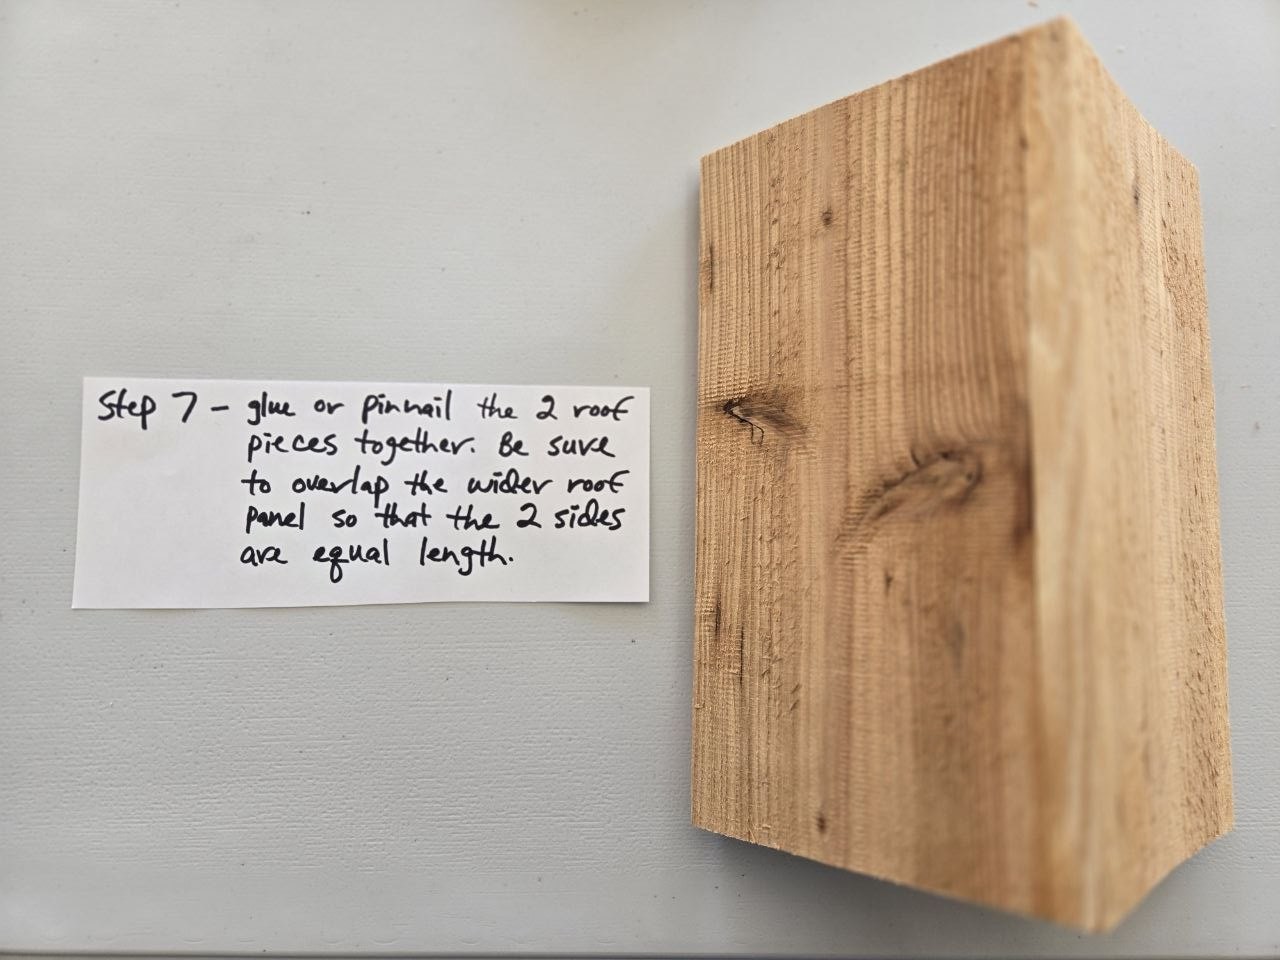 Step 7 - glue or pinnail the 2 roof
pieces together. Be sure
to overlap the wider roof
panel so that the 2 sides
are equal length.